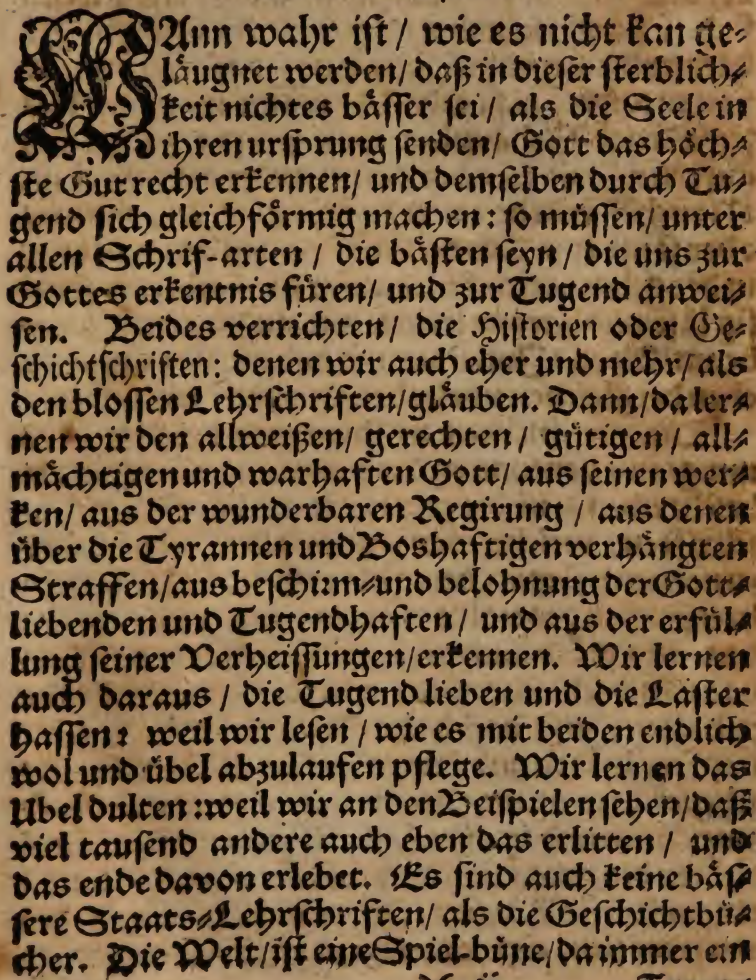 WAnn wahr ist / wie es nicht kan ge-
läugnet werden / daß in dieser sterblich-
keit nichtes bässer sei / als die Seele in
ihren ursprung senden / Gott das höch-
ste Gut recht erkennen / und demselben durch Tu-
gend sich gleichförmig machen : so müssen / unter
allen Schrif-arten / die bästen seyn / die uns zur
Gottes erkentnis füren / und zur Tugend anwei-
sen. Beides verrichten / die Historien oder Ge-
schichtschriften : denen wir auch eher und mehr / als
den blossen Lehrschriften / gläuben. Dann / da ler-
nen wir den allweißen / gerechten / gütigen / all-
mächtigen und warhaften Gott / aus seinen wer-
ken / aus der wunderbaren Regirung / aus denen
über die Tyrannen und Boshaftigen verhängten
Straffen / aus beschirm-und belohnung der Gott-
liebenden und Tugendhaften / und aus der erfül-
lung seiner Verheissungen / erkennen. Wir lernen
auch daraus / die Tugend lieben und die Laster
hassen : weil wir lesen / wie es mit beiden endlich
wol und übel abzulaufen pflege. Wir lernen das
Ubel dulten : weil wir an den Beispielen sehen / daß
viel tausend andere auch eben das erlitten / und
das ende davon erlebet. Es sind auch keine bäs-
sere Staats-Lehrschriften / als die Geschichtbü-
cher. Die Welt / ist eine Spiel-büne / da immer ein